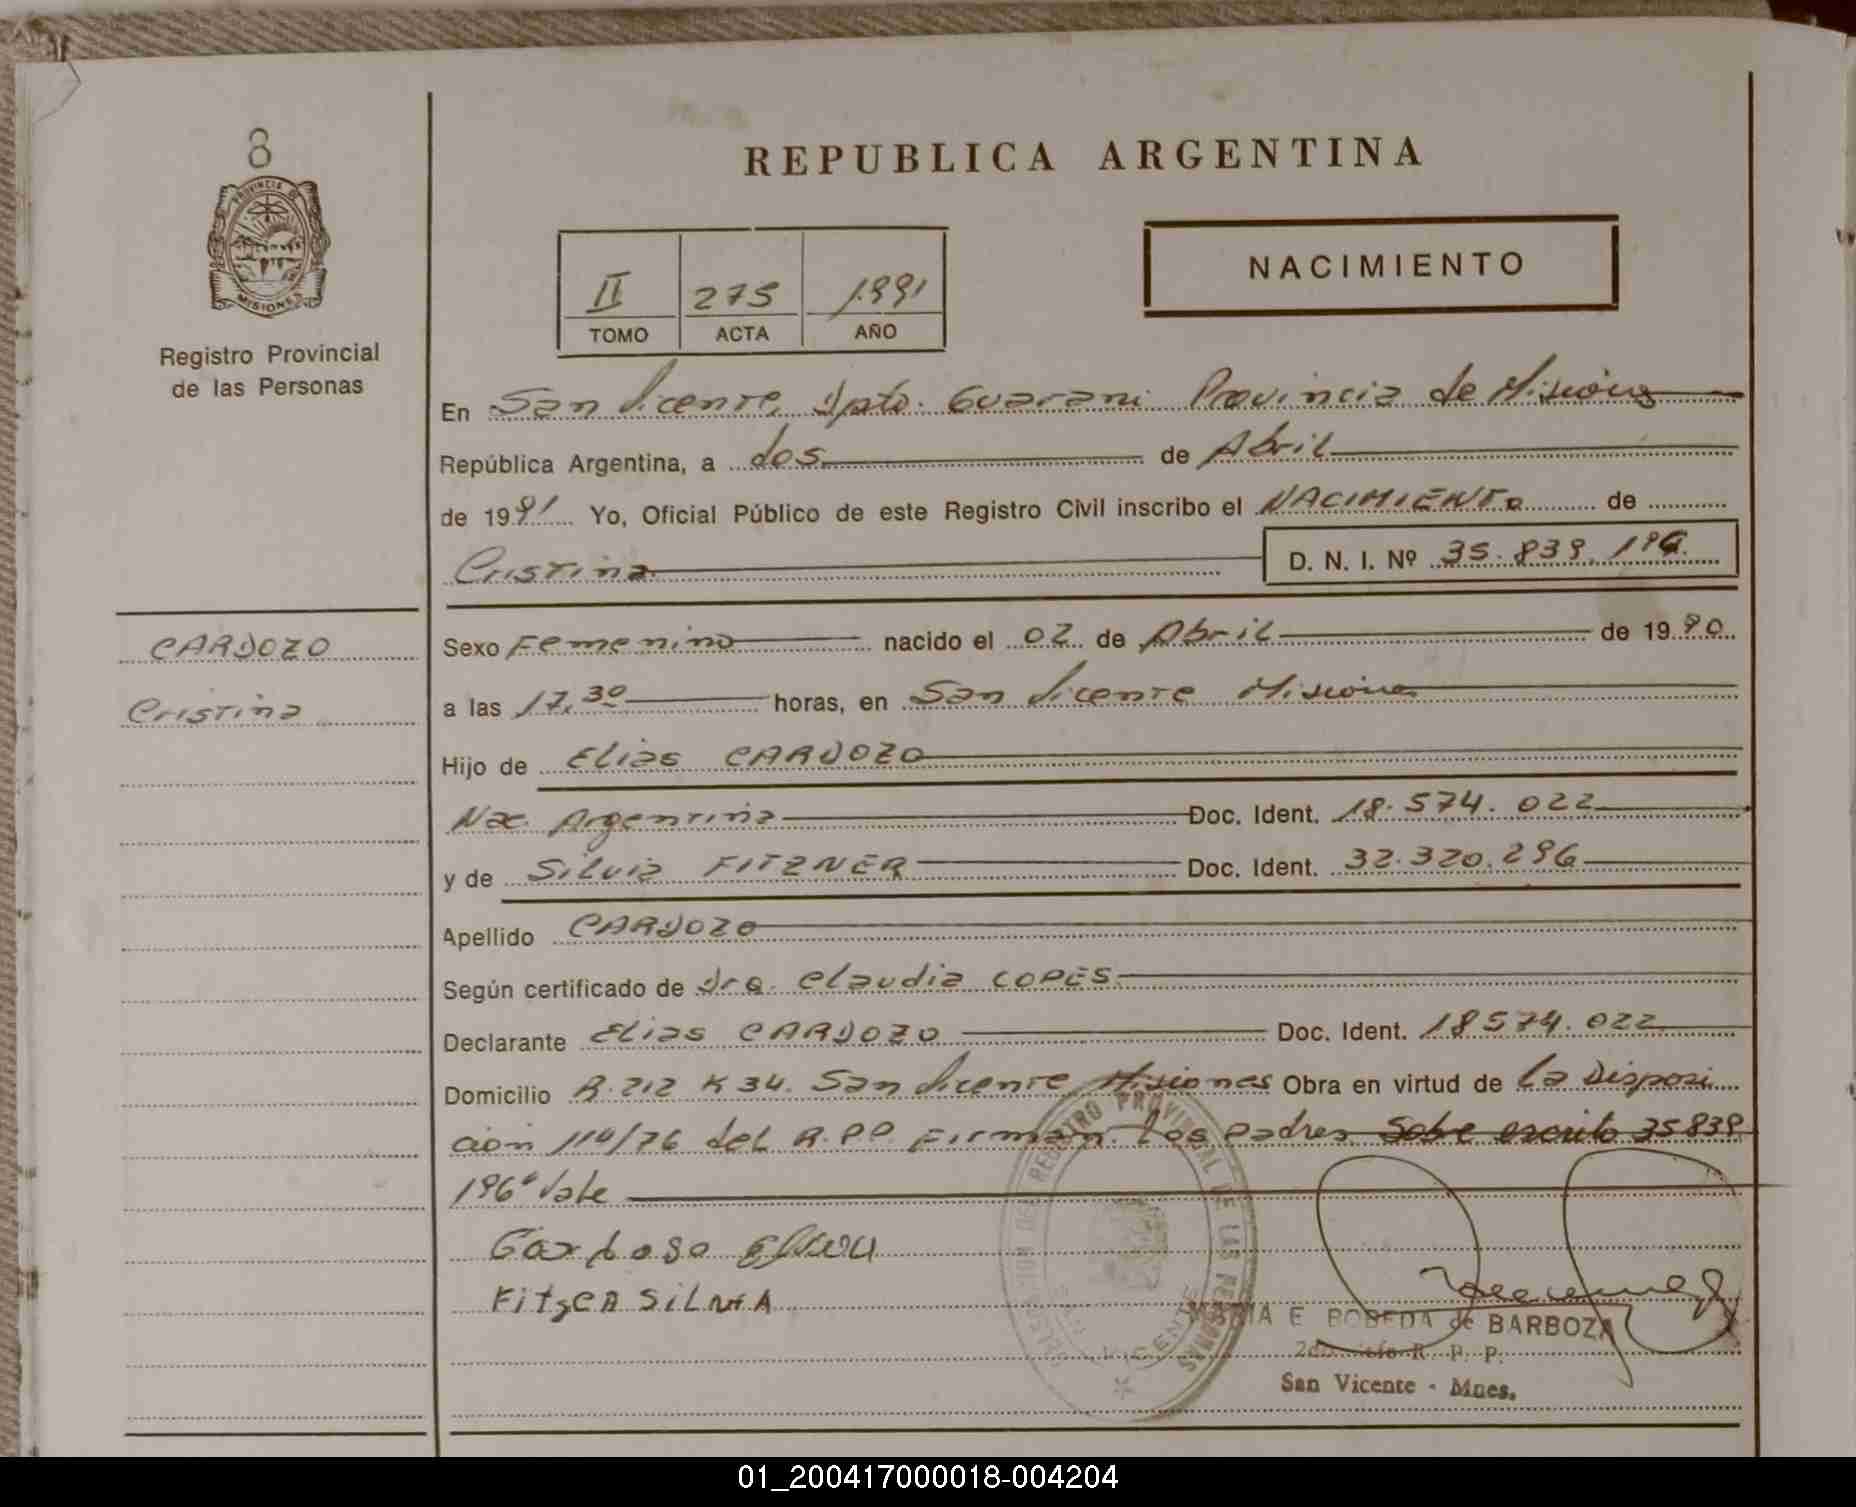 8
PROVINCIA DE
MISIONES
Registro Provincial
de las Personas
REPUBLICA ARGENTINA
NACIMIENTO
II 275 1991
TOMO ACTA AÑO
En San Vicente, Dpto. Guarani Provincia de Misiones
República Argentina, a dos de Abril
de 1991 Yo, Oficial Público de este Registro Civil inscribo el NACIMIENTO de
Cristina D. N. I. Nº 35.839.196
CARDOZO
Cristina
Sexo Femenino nacido el 02 de Abril de 1990
a las 17,30 horas, en San Vicente Misiones
Hijo de Elias CARDOZO
Nac. Argentina Doc. Ident. 18.574.022
y de Silvia FITZNER Doc. Ident. 32.320.296
Apellido CARDOZO
Según certificado de Dra. Claudia COPES
Declarante Elias CARDOZO Doc. Ident. 18.574.022
Domicilio R.212 K 34. San Vicente Misiones Obra en virtud de la Disposi
ción 110/76 del R.P.P. Firman los padres Sobre escrito 35839
196" Vale
Cardoso
Fitzca Silvia
REGISTRO PROVINCIAL DE LAS PERSONAS
VICENTE
MARIA E. BOBEDA de BARBOZA
R. P. P.
San Vicente - Mnes.
01_200417000018-004204